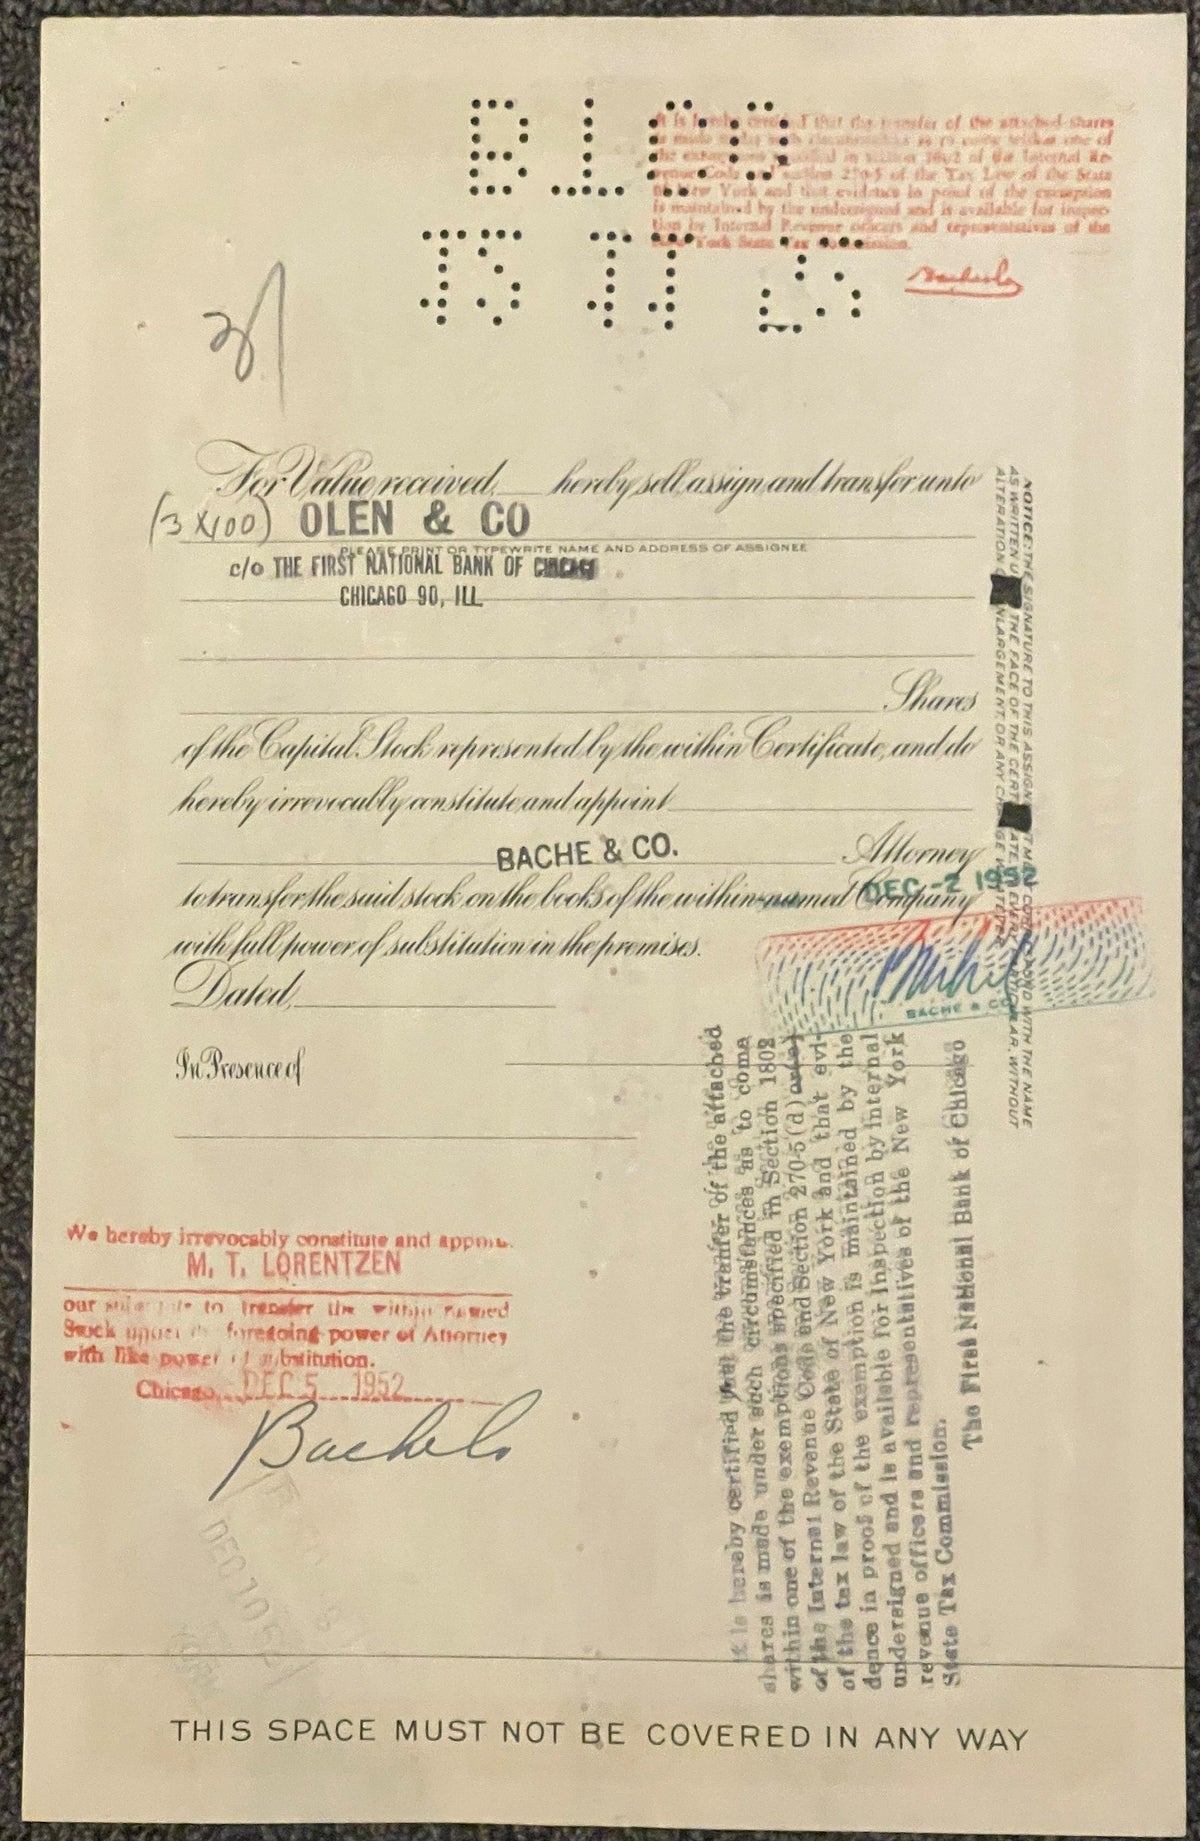 It is hereby certified that the transfer of the attached shares
is made under such circumstances as to come within one of
the exemptions specified in section 1802 of the Internal Re-
venue Code and section 270-5 of the Tax Law of the State
of New York and that evidence in proof of the exemption
is maintained by the undersigned and is available for inspec-
tion by Internal Revenue officers and representatives of the
New York State Tax Commission.
For Value received, hereby sell, assign, and transfer unto
(3 x 100) OLEN & CO
PLEASE PRINT OR TYPEWRITE NAME AND ADDRESS OF ASSIGNEE
c/o THE FIRST NATIONAL BANK OF CHICAGO
CHICAGO 90, ILL.
Shares
of the Capital Stock represented by the within Certificate, and do
hereby irrevocably constitute and appoint
BACHE & CO. Attorney
to transfer the said stock on the books of the within-named Company
DEC -2 1952
with full power of substitution in the premises.
BACHE & CO
Dated,
In Presence of
NOTICE: THE SIGNATURE TO THIS ASSIGNMENT MUST CORRESPOND WITH THE NAME
AS WRITTEN UPON THE FACE OF THE CERTIFICATE, IN EVERY PARTICULAR, WITHOUT
ALTERATION OR ENLARGEMENT, OR ANY CHANGE WHATEVER
We hereby irrevocably constitute and appoint
M. T. LORENTZEN
our substitute to transfer the within named
Stock under the foregoing power of Attorney
with like power of substitution.
Chicago, DEC 5 1952
Bache & Co
It is hereby certified that the tranfer of the attached
shares is made under such circumstances as to come
within one of the exemptions specified in Section 1802
of the Internal Revenue Code and Section 270-5 (d) or (e)
of the tax law of the State of New York and that evi-
dence in proof of the exemption is maintained by the
undersigned and is available for inspection by internal
revenue officers and representatives of the New York
State Tax Commission.
The First National Bank of Chicago
THIS SPACE MUST NOT BE COVERED IN ANY WAY